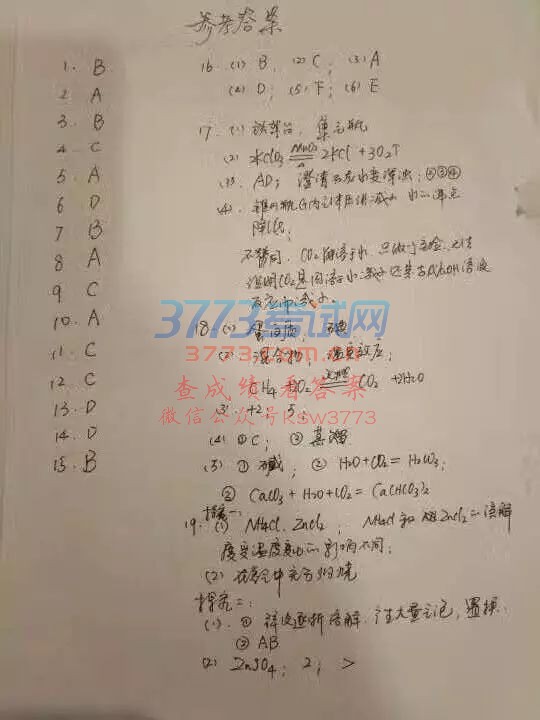 参考答案
1. B
2. A
3. B
4. C
5. A
6. D
7. B
8. A
9. C
10. A
11. C
12. C
13. D
14. D
15. B
16. (1) B, (2) C; (3) A
(4) D; (5) F; (6) E
17. (1) 铁架台, 集气瓶
(2) 2KClO3 MnO2 △ 2KCl + 3O2↑
(3). AD; 澄清石灰水变浑浊; ②③④
(4). 锥形瓶内气体压强减小 水的沸点
降低;
不赞同, CO2能溶于水, 只做一个实验, 无法
证明CO2是因溶于水减少还是与NaOH溶液
反应而减少.
18. (1) 蛋白质; 碘
(2) 混合物; 温室效应;
CH4 + 2O2 点燃 CO2 + 2H2O
(3) +2; 5;
(4) ① C; ② 蒸馏
(5) ① 碱; ② H2O+CO2=H2CO3;
③ CaCO3 + H2O + CO2 = Ca(HCO3)2
探究一:
19. (1) NH4Cl, ZnCl2; NH4Cl和ZnCl2的溶解
度受温度变化的影响不同;
(2) 在空气中充分灼烧
探究二:
(1). ① 锌皮逐渐溶解, 产生大量气泡, 置换.
② AB
(2) ZnSO4; 2; >
3773考试网
3773.com.cn
查成绩 看答案
微信公众号ksw3773